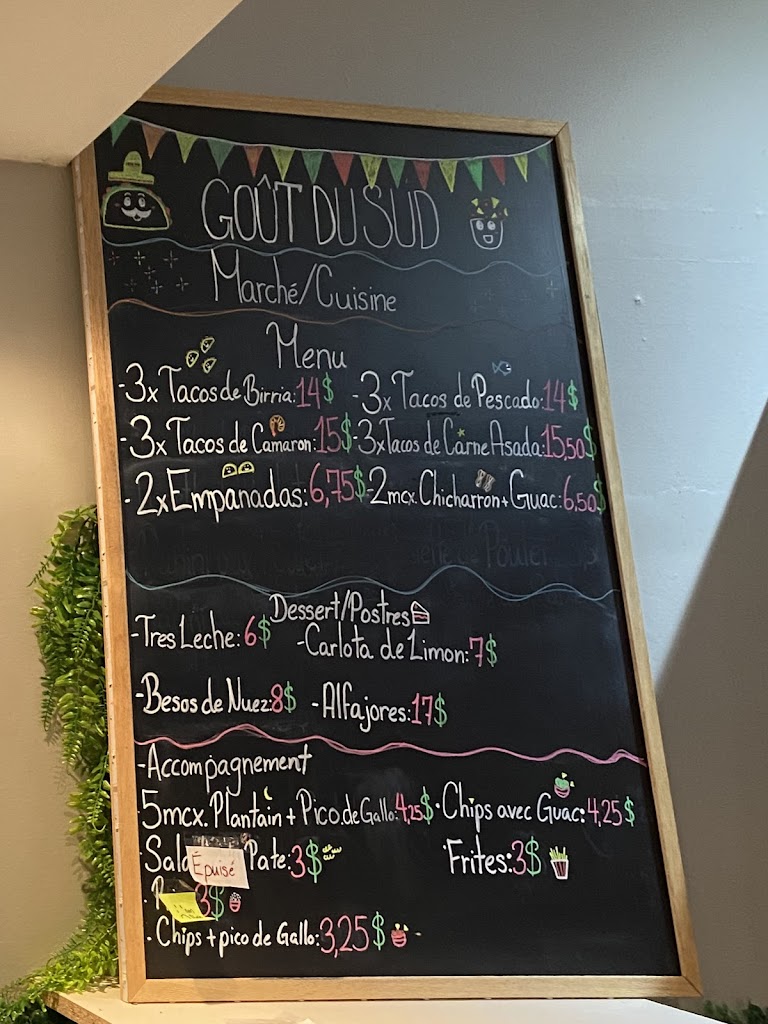 GOÛT DU SUD
Marché/Cuisine
Menu
-3x Tacos de Birria: 14$ -3x Tacos de Pescado: 14$
-3x Tacos de Camaron: 15$ -3x Tacos de Carne Asada: 15,50$
-2x Empanadas: 6,75$ -2mcx. Chicharron + Guac: 6,50$
Dessert/Postres
-Tres Leche: 6$ -Carlota de Limon: 7$
-Besos de Nuez: 8$ -Alfajores: 17$
-Accompagnement
5mcx. Plantain + Pico de Gallo: 4,25$ · Chips avec Guac: 4,25$
· Pate: 3$ · Frites: 3$
Épuisé
3$
· Chips + pico de Gallo: 3,25$